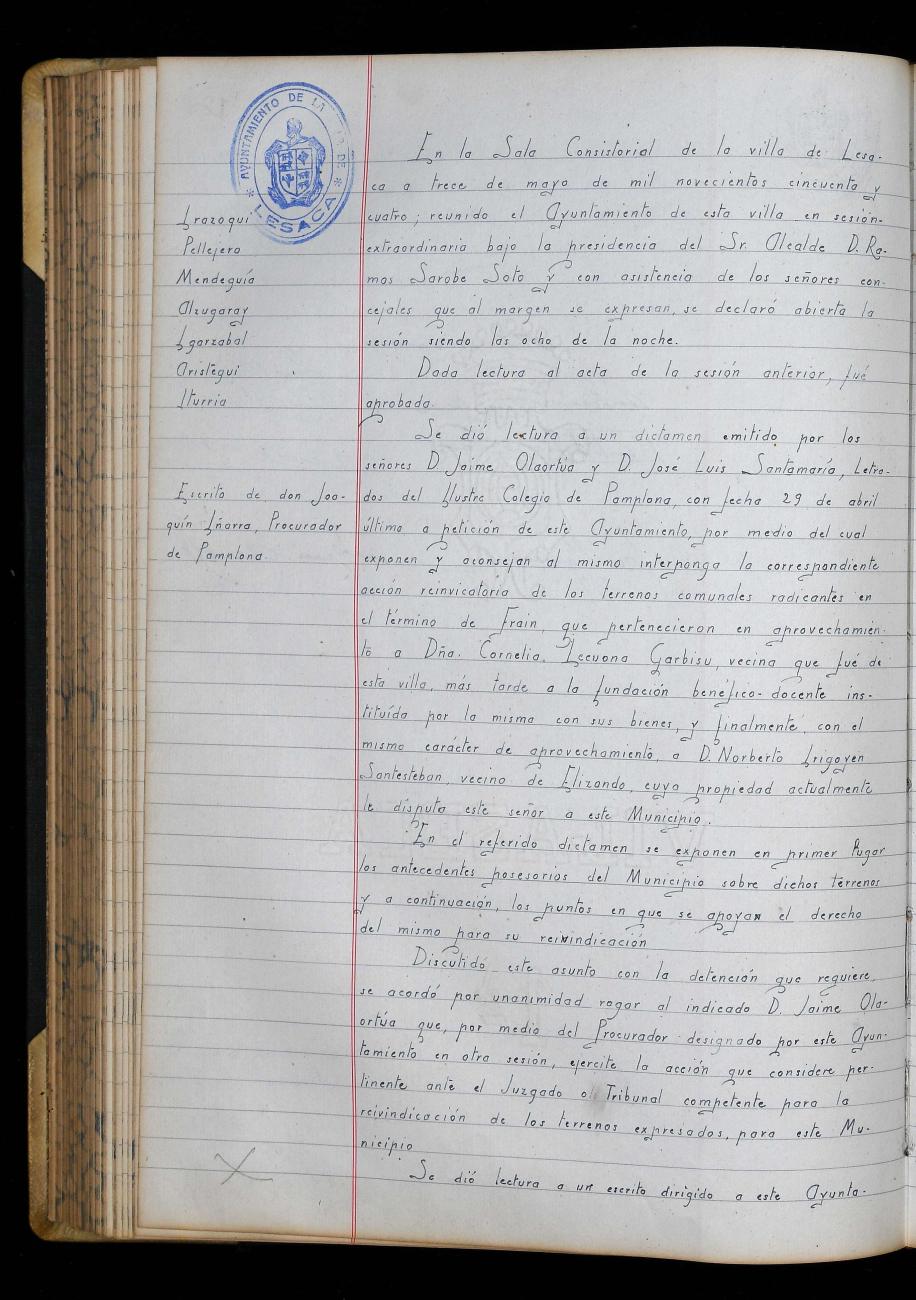 AYUNTAMIENTO DE LA VILLA DE
* LESACA *
Irazoqui
Pellejero
Mendeguía
Alzugaray
Igarzabal
Aristegui
Iturria
Escrito de don Joa-
quín Iñarra, Procurador
de Pamplona
En la Sala Consistorial de la villa de Lesa-
ca a trece de mayo de mil novecientos cincuenta y
cuatro; reunido el Ayuntamiento de esta villa en sesión
extraordinaria bajo la presidencia del Sr. Alcalde D. Ra-
mos Sarobe Soto y con asistencia de los señores con-
cejales que al margen se expresan, se declaró abierta la
sesión siendo las ocho de la noche.
Dada lectura al acta de la sesión anterior, fué
aprobada.
Se dió lectura a un dictamen emitido por los
señores D Jaime Olaortúa y D. José Luis Santamaría, Letra-
dos del Ilustre Colegio de Pamplona, con fecha 29 de abril
último a petición de este Ayuntamiento, por medio del cual
exponen y aconsejan al mismo interponga la correspondiente
acción reinvicatoria de los terrenos comunales radicantes en
el término de Frain, que pertenecieron en aprovechamien-
to a Dña. Cornelia Lecuona Garbisu, vecina que fué de
esta villa, más tarde a la fundación benéfico-docente ins-
tituída por la misma con sus bienes, y finalmente, con el
mismo carácter de aprovechamiento, a D. Norberto Irigoyen
Santesteban, vecino de Elizondo, cuya propiedad actualmente
le disputa este señor a este Municipio.
En el referido dictamen se exponen en primer lugar
los antecedentes posesorios del Municipio sobre dichos terrenos
y a continuación, los puntos en que se apoyan el derecho
del mismo para su reivindicación
Discutido este asunto con la detención que requiere,
se acordó por unanimidad rogar al indicado D. Jaime Ola-
ortúa que, por medio del Procurador designado por este Ayun-
tamiento en otra sesión, ejercite la acción que considere per-
tinente ante el Juzgado o Tribunal competente para la
reivindicación de los terrenos expresados, para este Mu-
nicipio
Se dió lectura a un escrito dirigido a este Ayunta-